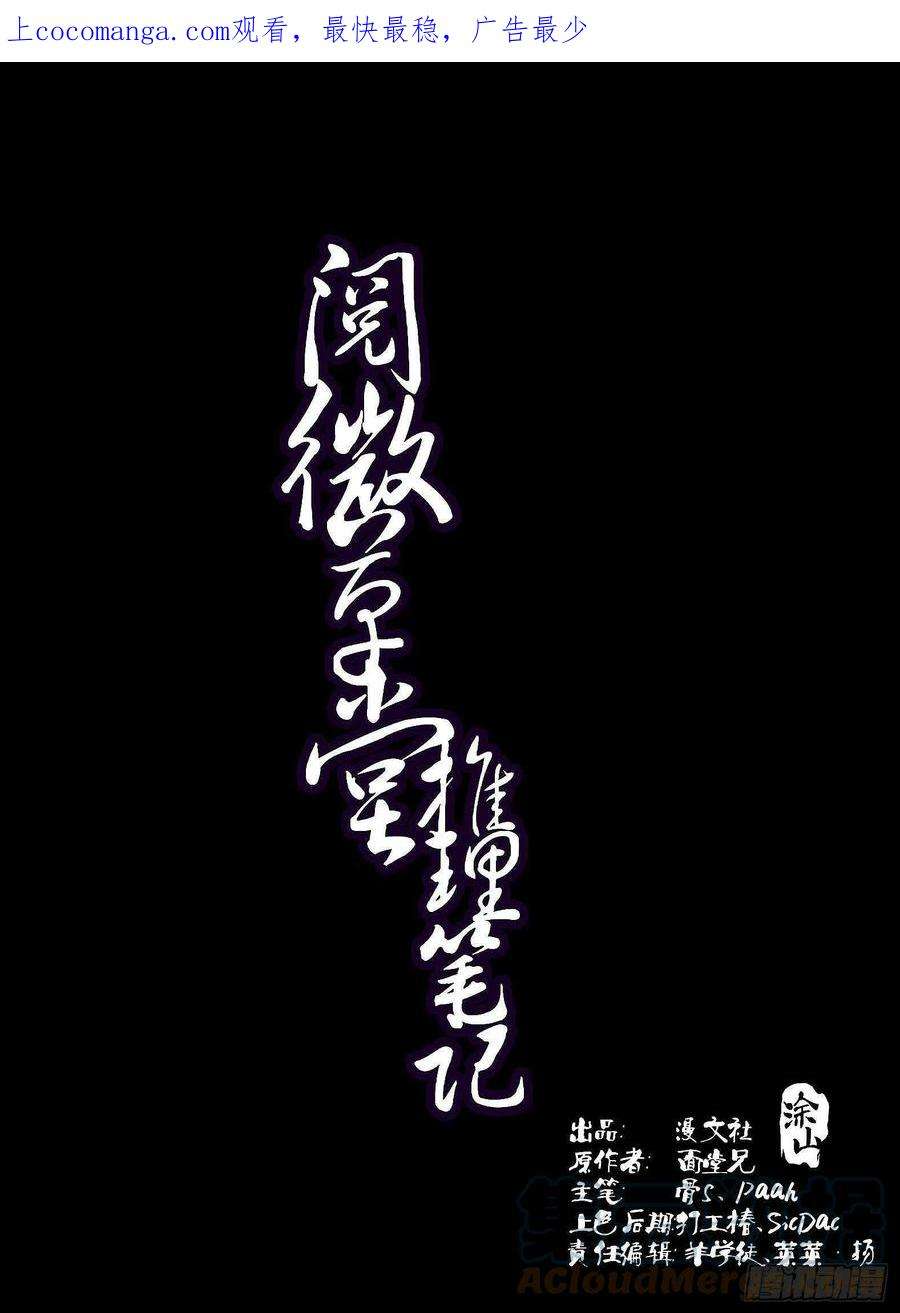 上cocomanga.com观看，最快最稳，广告最少
阅微草堂
推理笔记
涂山
出品: 漫文社
原作者: 面堂兄
主笔: 骨S、paah
上色后期:打工椿、SicDac
責任编辑:羊学徒、菜菜·扬
AcloudMer
腾讯动漫